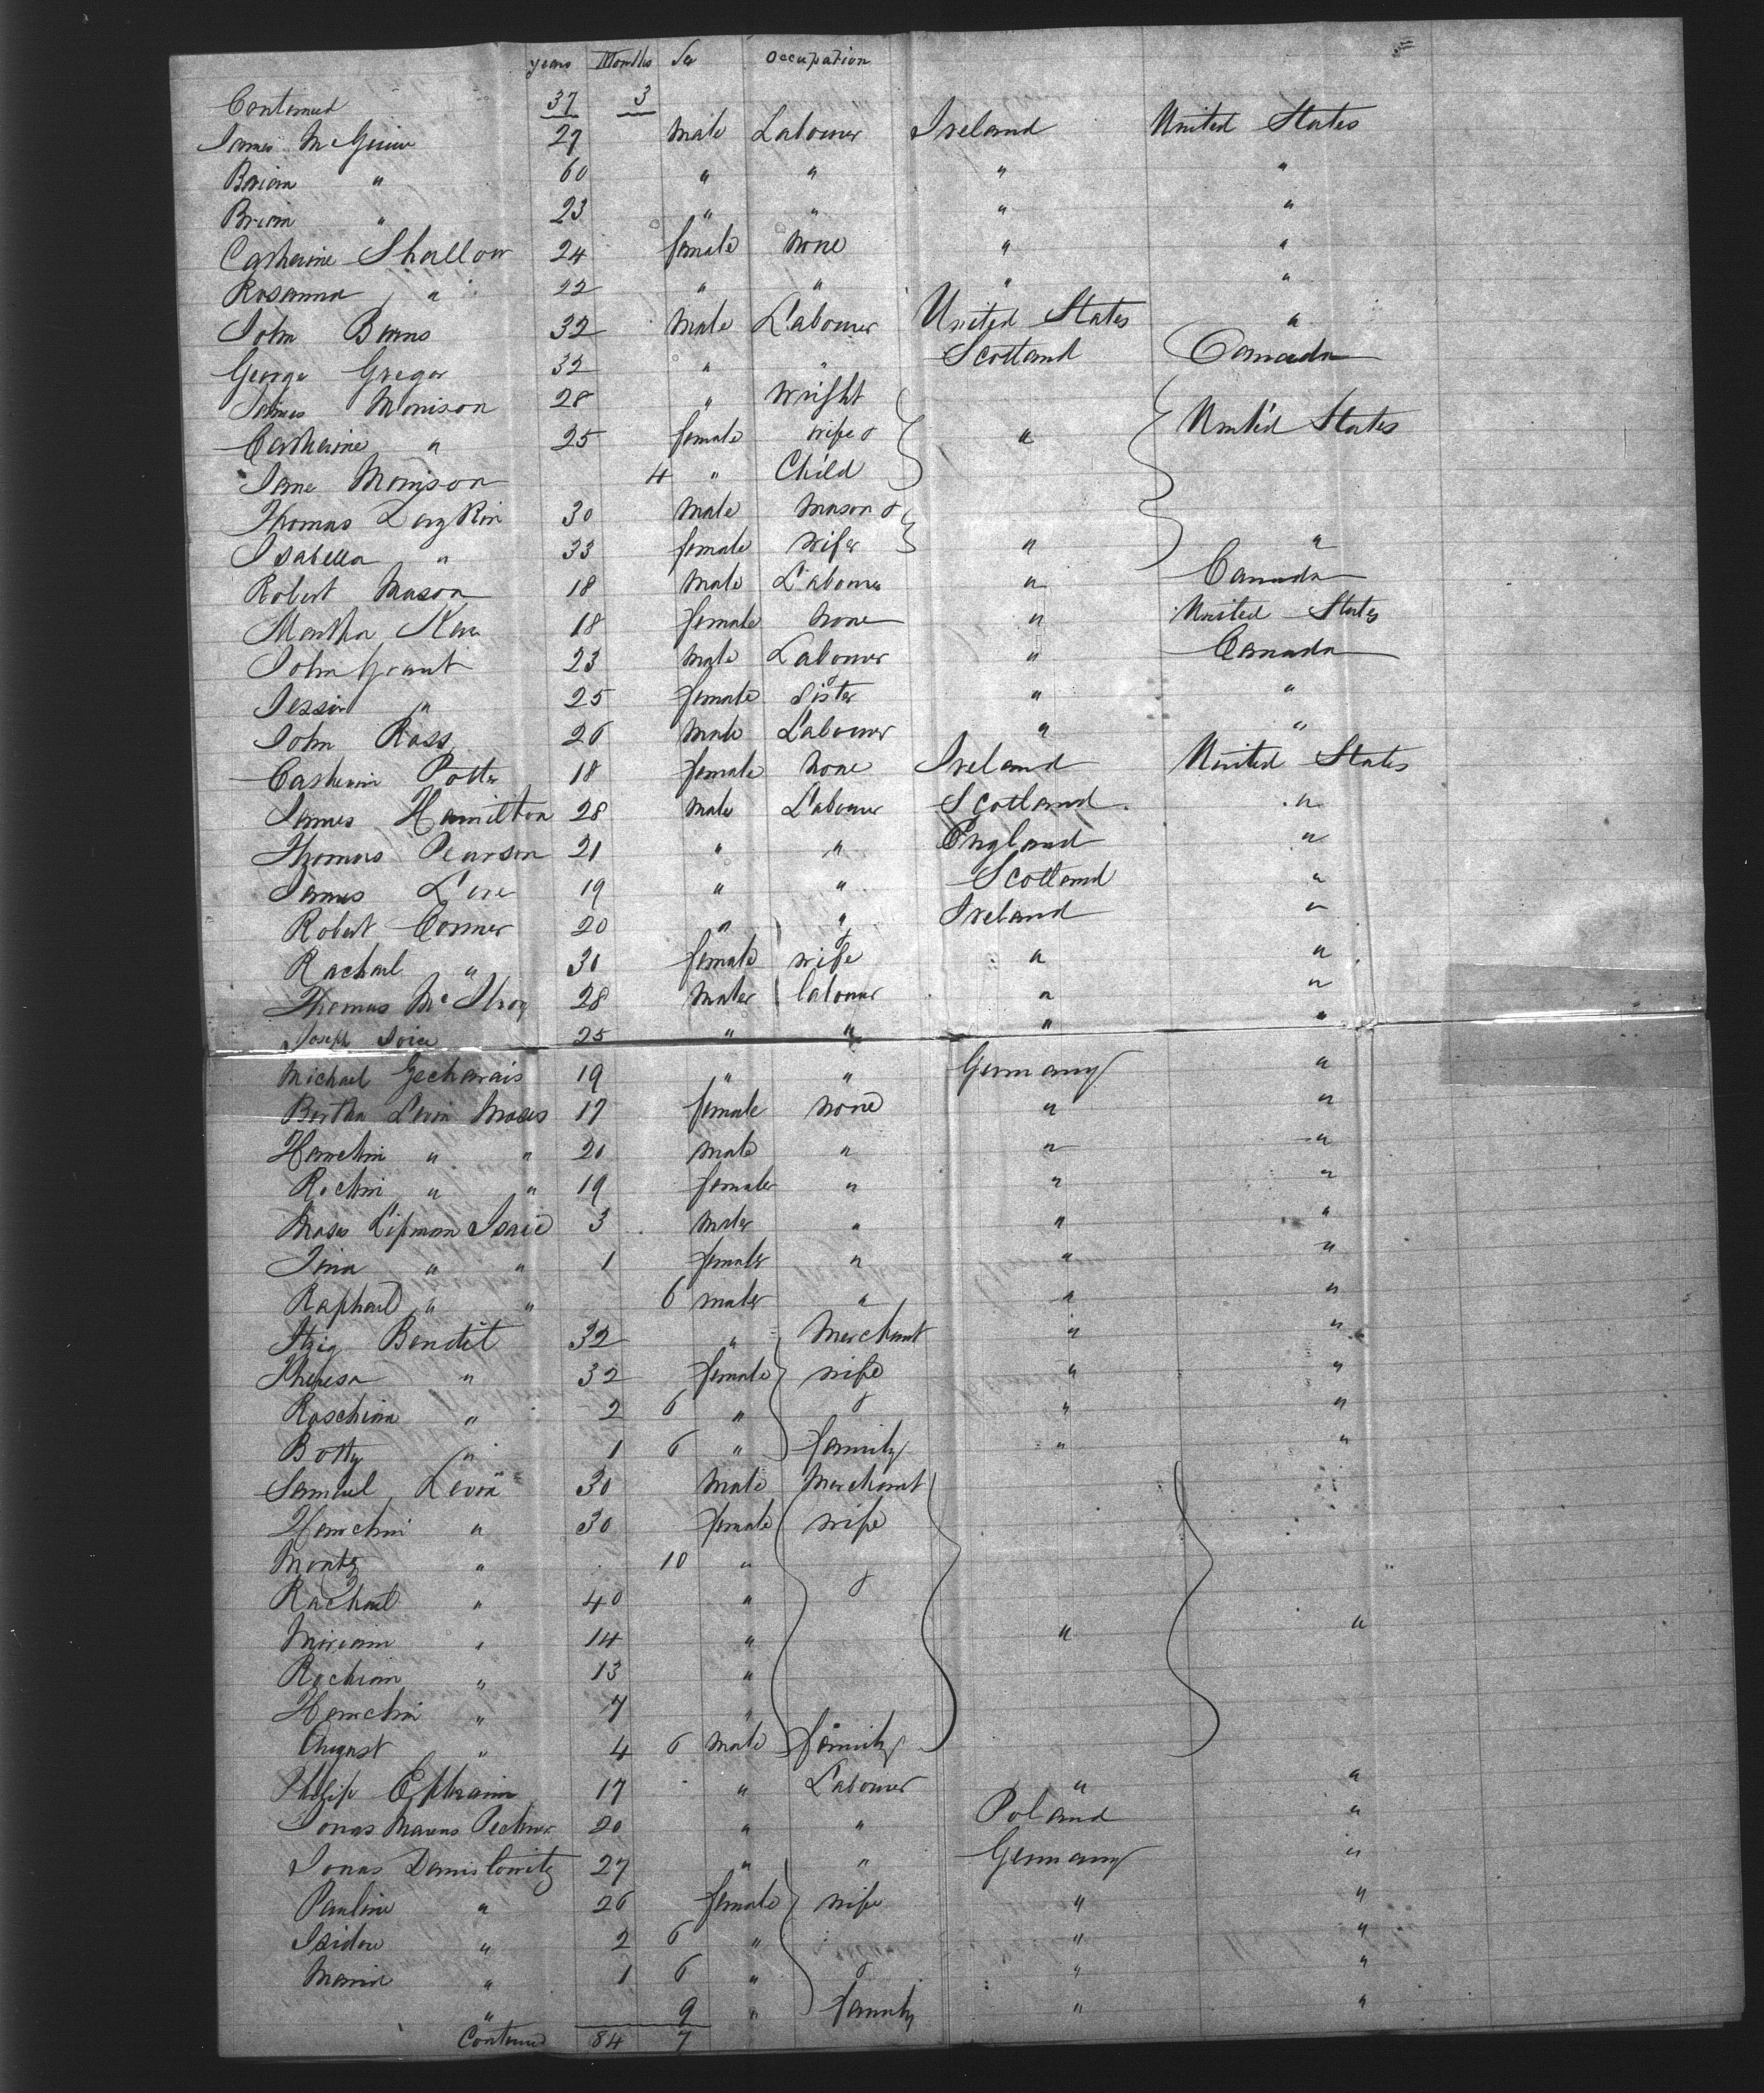 years Months Sex Occupation
Contenued 37 3
James McGuire 27 male Labourer Ireland United States
Brian " 60 " " " "
Brian " 23 " " " "
Catherine Shallow 24 female none " "
Rosanna " 22 " " " "
John Burns 32 male Labourer United States "
George Gregor 32 " " Scotland Canada
James Morrison 28 " Wright
Catherine " 25 female wife & " United States
Jane Morrison 4 " Child
Thomas 30 male mason &
Isabella " 33 female wife " "
Robert Mason 18 male Labourer " Canada
Martha Kerr 18 female none " United States
John Grant 23 male Labourer " Canada
Jessie " 25 female sister " "
John Ross 26 male Labourer " "
Catherine Potter 18 female none Ireland United States
James Hamilton 28 male Labourer Scotland "
Thomas Pearson 21 " " England "
James Love 19 " " Scotland "
Robert Conner 20 " " & Ireland "
Rachael " 30 female wife " "
Thomas McIlroy 28 male labourer " "
Joseph 25 " " " "
Michael 19 " " Germany "
Bertha Levin Moses 17 female none " "
" " 20 male " " "
" " 19 female " " "
Moses Lipman Isaic 3 male " " "
" " 1 female " " "
Raphael " " 6 male " " "
Itzig Bendit 32 " Merchant " "
Theresa " 32 female wife " "
Raschina " 2 6 " & " "
Botty " 1 6 " family " "
Samuel Levin 30 male Merchant
" 30 female wife
" 10 " &
Rachael " 40 "
Miriam " 14 " " "
" 13 "
" 7 "
August " 4 6 male family
Philip Ephraim 17 " Labourer " "
Jonas Marcus 20 " " Poland "
Jonas Danislowitz 27 " " Germany "
Pauline " 26 female wife " "
Isidore " 2 6 " " "
Maria " 1 6 " & " "
" 9 " family " "
Contenued 84 7